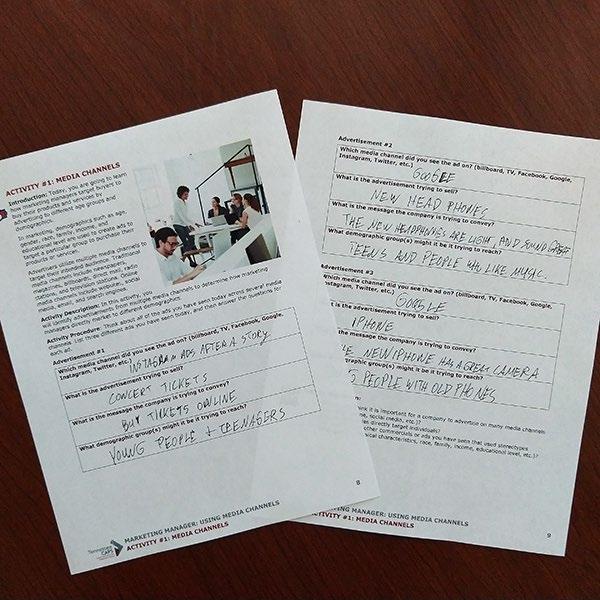 ACTIVITY #1: MEDIA CHANNELS
Introduction: Today, you are going to learn
how marketing managers target buyers to
buy their products and services by
advertising to different age groups and
demographics.
In marketing, demographics such as age,
gender, faith, family, income, and
educational level are used to create ads to
target a particular group to purchase their
products or services.
Advertisers utilize multiple media channels to
target their intended audience. Traditional
media channels include newspapers,
magazines, billboards, direct mail, radio
stations, and television stations. Online
media channels include websites, social
media, email, and search engines.
Activity Description: In this activity, you
will identify advertisements from multiple media channels to determine how marketing
managers directly market to different demographics.
Activity Procedure: Think about all of the ads you have seen today across several media
channels. List three different ads you have seen today, and then answer the questions for
each ad.
Advertisement #1
Which media channel did you see the ad on? (billboard, TV, Facebook, Google,
Instagram, Twitter, etc.)
INSTAGRAM ADS AFTER A STORY
What is the advertisement trying to sell?
CONCERT TICKETS
What is the message the company is trying to convey?
BUY TICKETS ONLINE
What demographic group(s) might it be trying to reach?
YOUNG PEOPLE + TEENAGERS
8
MARKETING MANAGER: USING MEDIA CHANNELS
ACTIVITY #1: MEDIA CHANNELS
Advertisement #2
Which media channel did you see the ad on? (billboard, TV, Facebook, Google,
Instagram, Twitter, etc.)
GOOGLE
What is the advertisement trying to sell?
NEW HEAD PHONES
What is the message the company is trying to convey?
THE NEW HEADPHONES ARE LIGHT, AND SOUND GREAT
What demographic group(s) might it be trying to reach?
TEENS AND PEOPLE WHO LIKE MUSIC
#3
media channel did you see the ad on? (billboard, TV, Facebook, Google,
Twitter, etc.)
GOOGLE
the advertisement trying to sell?
IPHONE
the message the company is trying to convey?
NEW IPHONE HAS A GREAT CAMERA
group(s) might it be trying to reach?
PEOPLE WITH OLD PHONES
think it is important for a company to advertise on many media channels
social media, etc.)?
directly target individuals?
other commercials or ads you have seen that used stereotypes
characteristics, race, family, income, educational level, etc.)?
MARKETING MANAGER: USING MEDIA CHANNELS
ACTIVITY #1: MEDIA CHANNELS
9